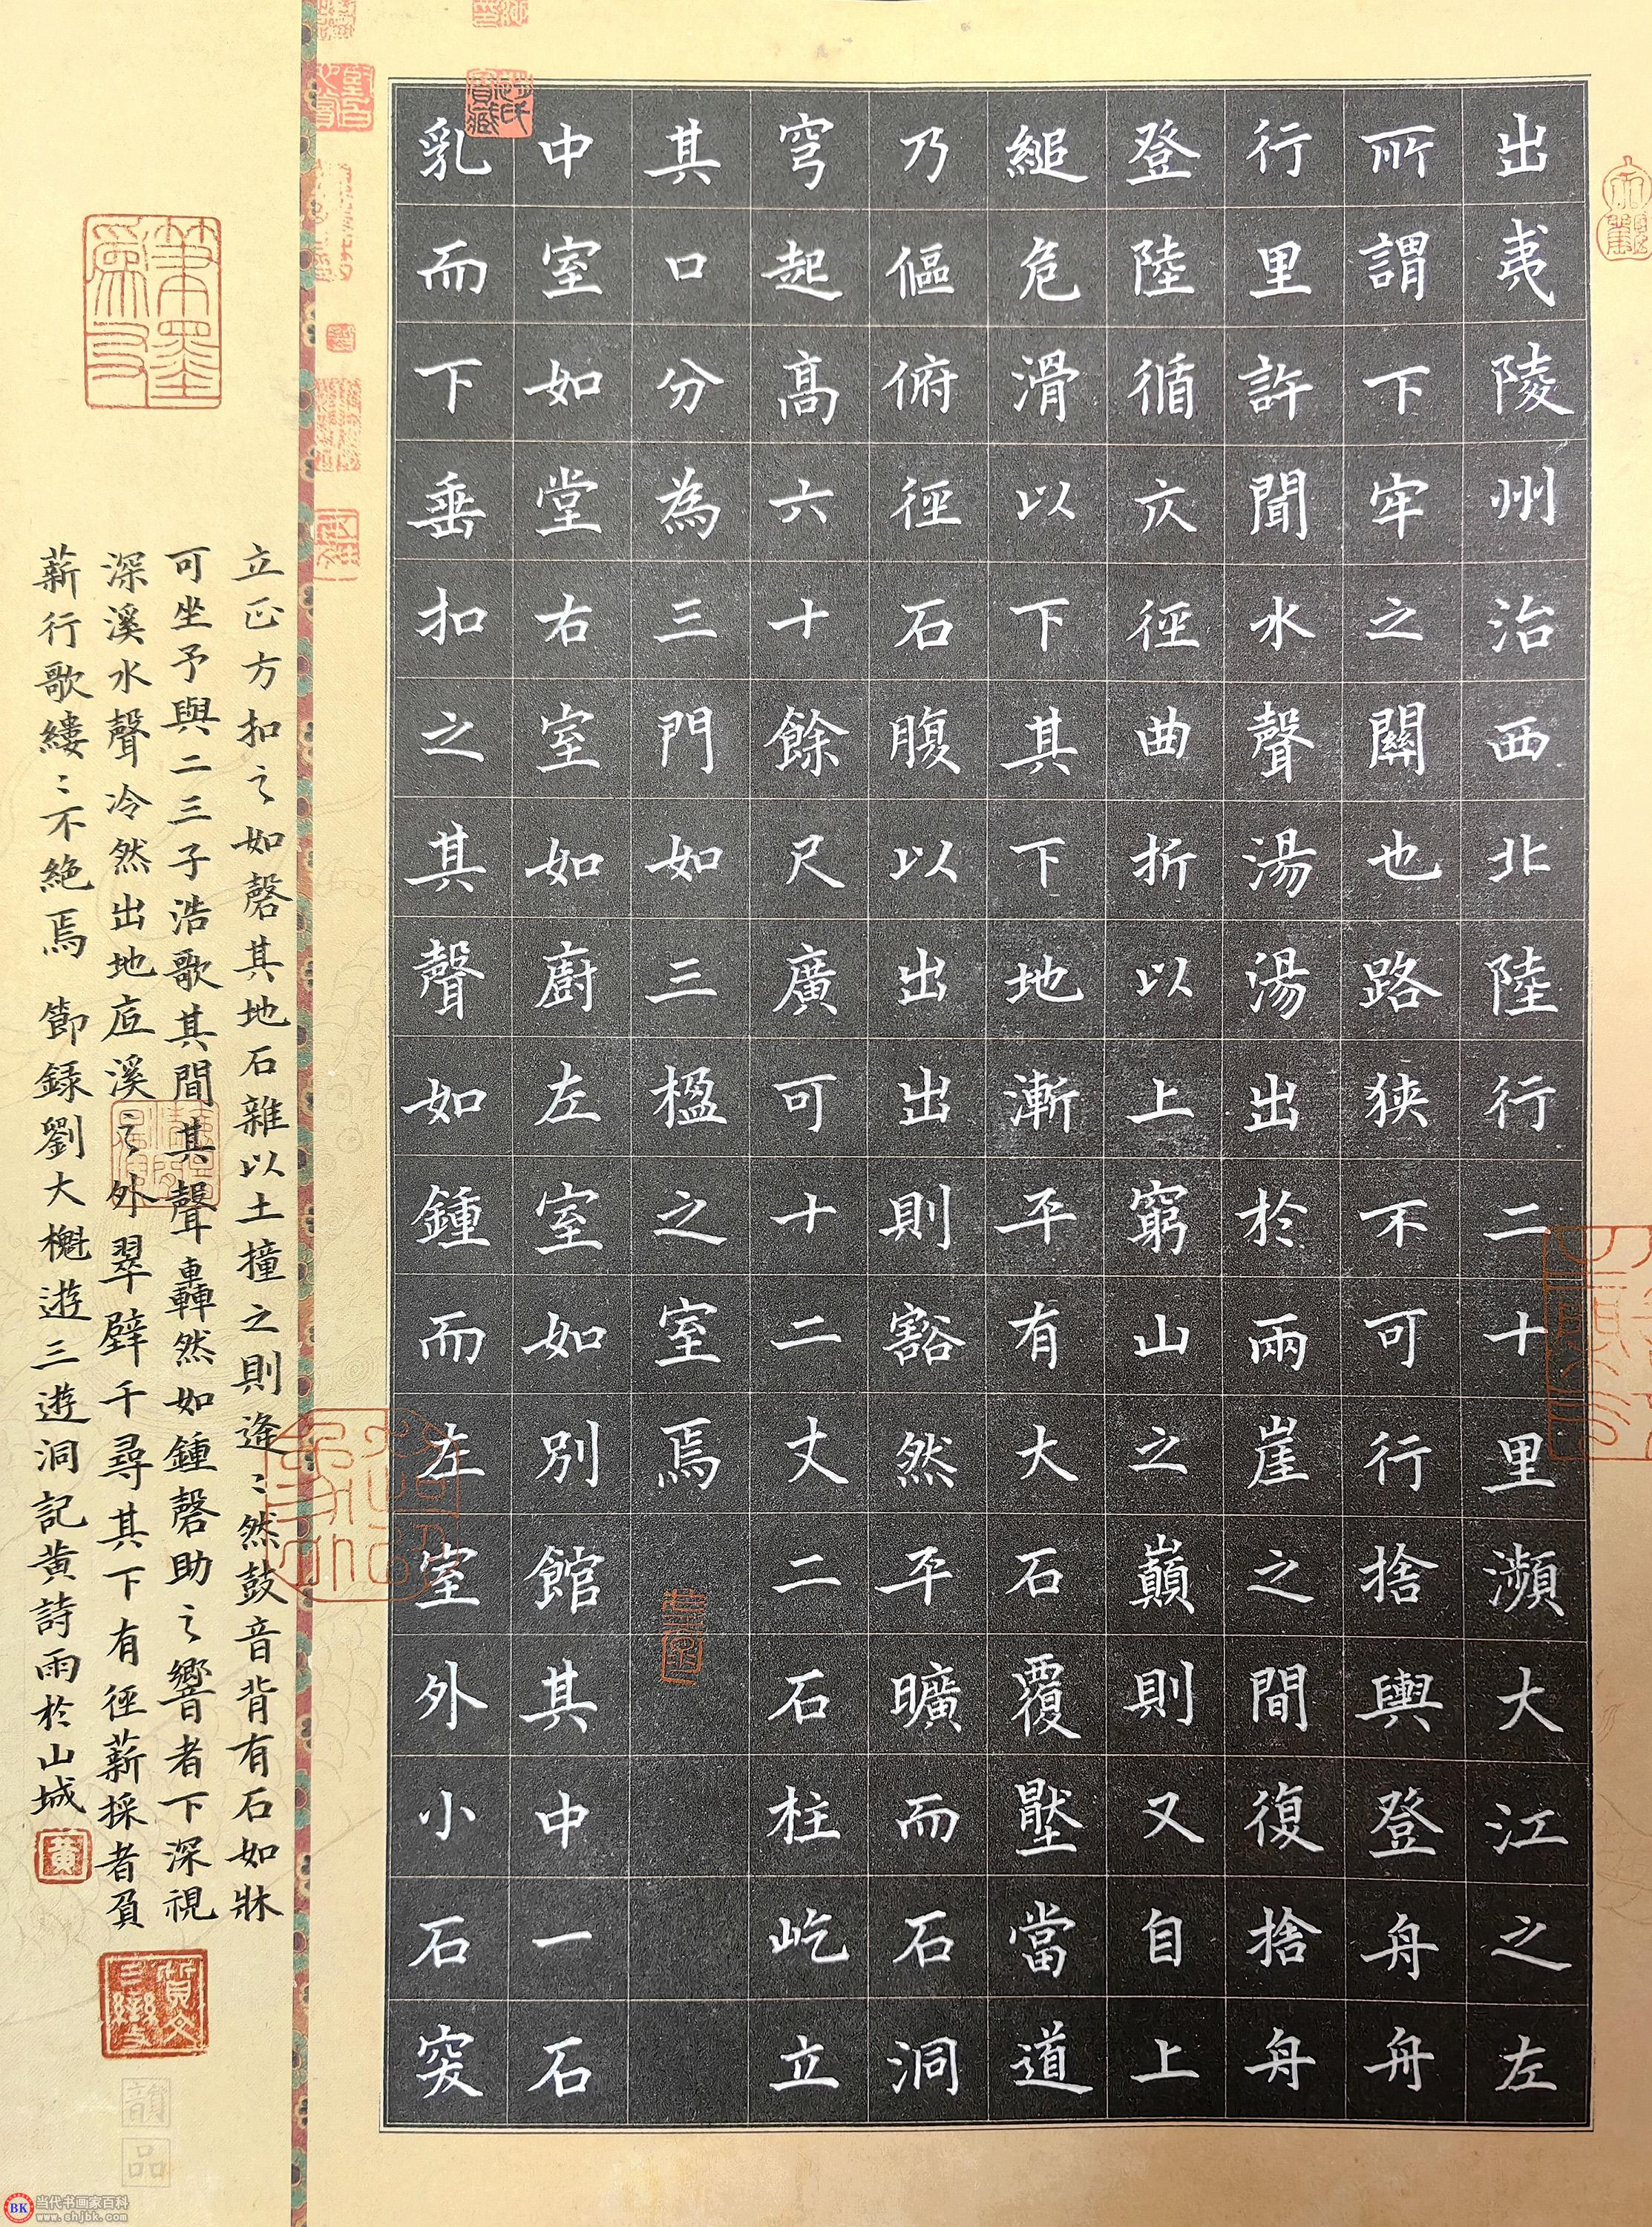 出夷陵州治西北陸行二十里瀕大江之左
所謂下牢之關也路狹不可行捨輿登舟舟
行里許聞水聲湯湯出於兩崖之間復捨舟
登陸循仄徑曲折以上窮山之巔則又自上
縋危滑以下其下地漸平有大石覆壓當道
乃傴俯徑石腹以出出則豁然平曠而石洞
穹起高六十餘尺廣可十二丈二石柱屹立
其口分為三門如三楹之室焉
中室如堂右室如廚左室如別館其中一石
乳而下垂扣之其聲如鍾而左室外小石突
立正方扣之如磬其地石雜以土撞之則逄〻然鼓音背有石如牀
可坐予與二三子浩歌其間其聲轟然如鍾磬助之響者下深視
深溪水聲冷然出地底溪之外翠壁千尋其下有徑薪採者負
薪行歌縷〻不絕焉 節錄劉大櫆遊三遊洞記黃詩雨於山城
筆墨為友
黃
韻品
BK 当代书画家百科
www.shjbk.com